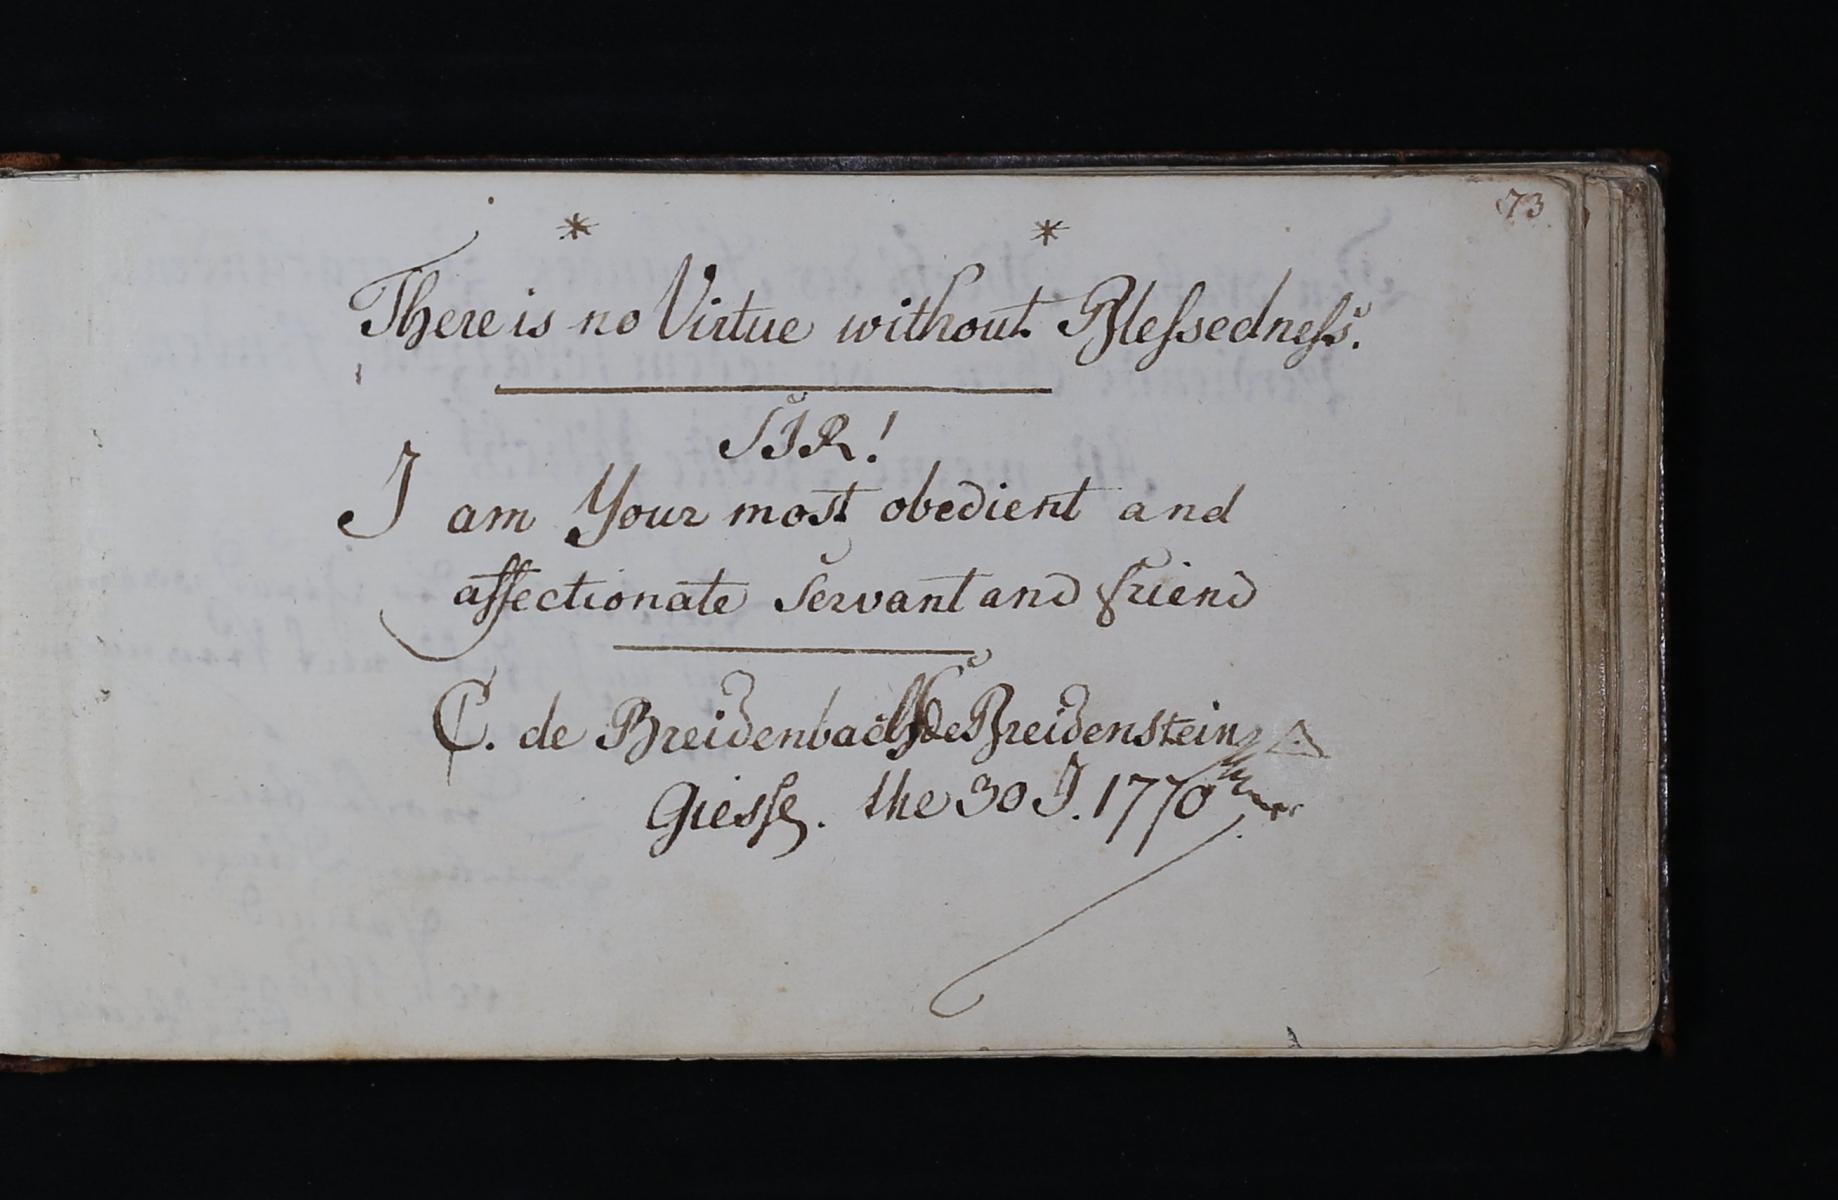 73
* *
There is no Virtue without Blessedness.
SIR!
I am Your most obedient and
affectionate Servant and friend
C. de Breidenbach de Breidenstein
Giesse. the 30 J. 1770